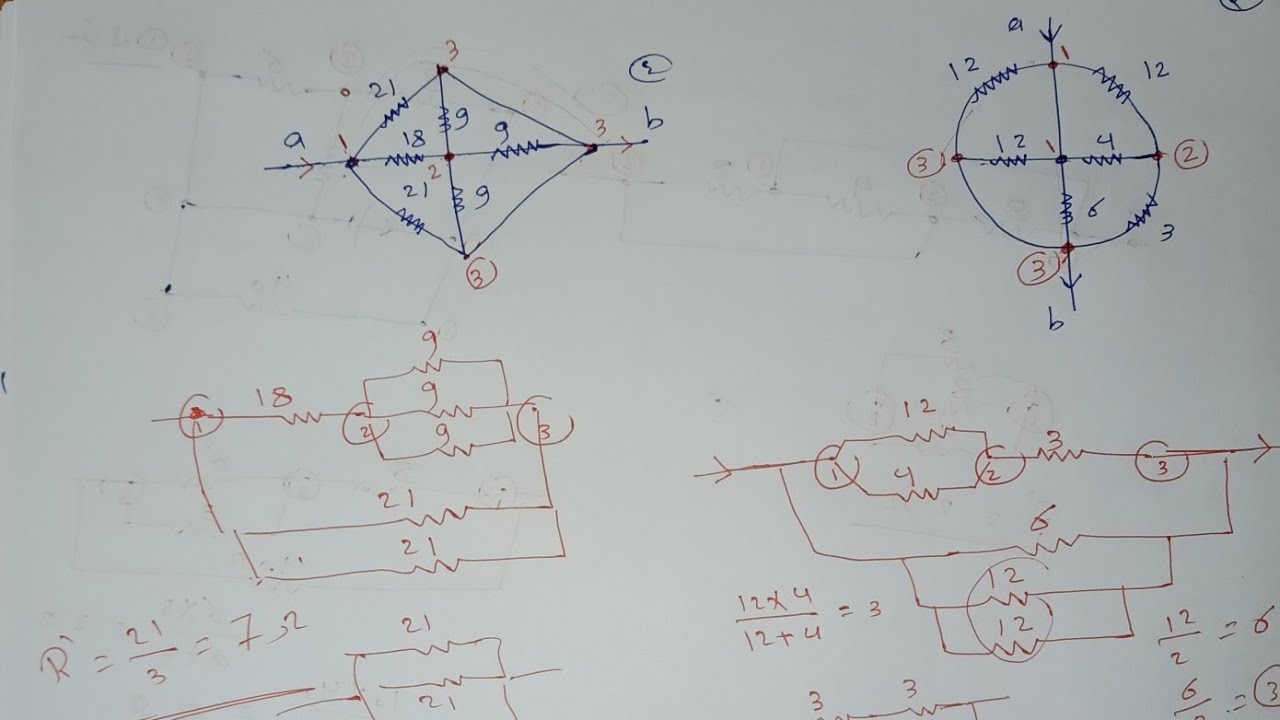 3
21
9
2
a
1
18
9
3
b
2
21
9
3
a
1
12
12
3
12
1
4
2
6
3
3
b
9
18
9
1
2
9
3
21
21
R' = 21/3 = 7 Ω
21
21
12
3
1
4
2
3
6
12
12
12×4/12+4 = 3
12/2 = 6
3
3
3